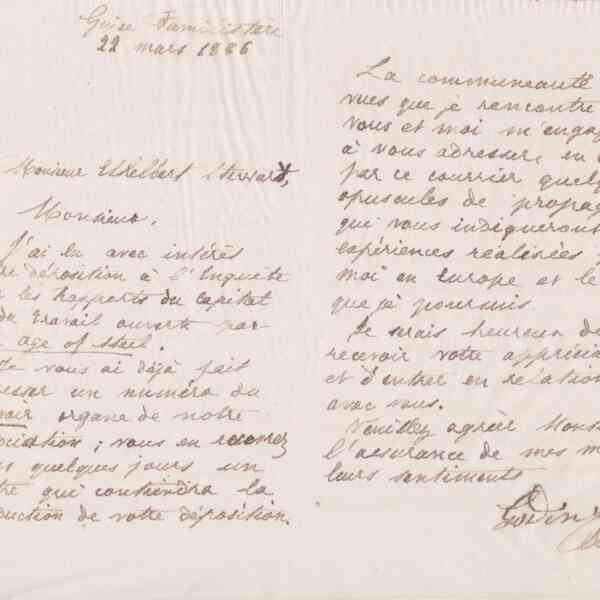 Guise Familistère
22 mars 1886
Monsieur Ethelbert Stewart,
Monsieur,
J'ai lu avec intérêt
re déposition à l'Enquête
les Rapports du Capital
du Travail ouverte par
age of steel.
Je vous ai déjà fait
esser un numéro du
oir organe de notre
ociation ; vous en recevrez
s quelques jours un
tre qui contiendra la
duction de votre déposition.
La communauté
vues que je rencontre
vous et moi m'engag
à vous adresser, en
par ce courrier quelq
opuscules de propag
qui vous indiqueront
expériences réalisées
moi en Europe et le
que je poursuis.
Je serais heureux de
recevoir votre appréciat
et d'entrer en relation
avec vous.
Veuillez agréer Mons
l'assurance de mes m
leurs sentiments
Godin